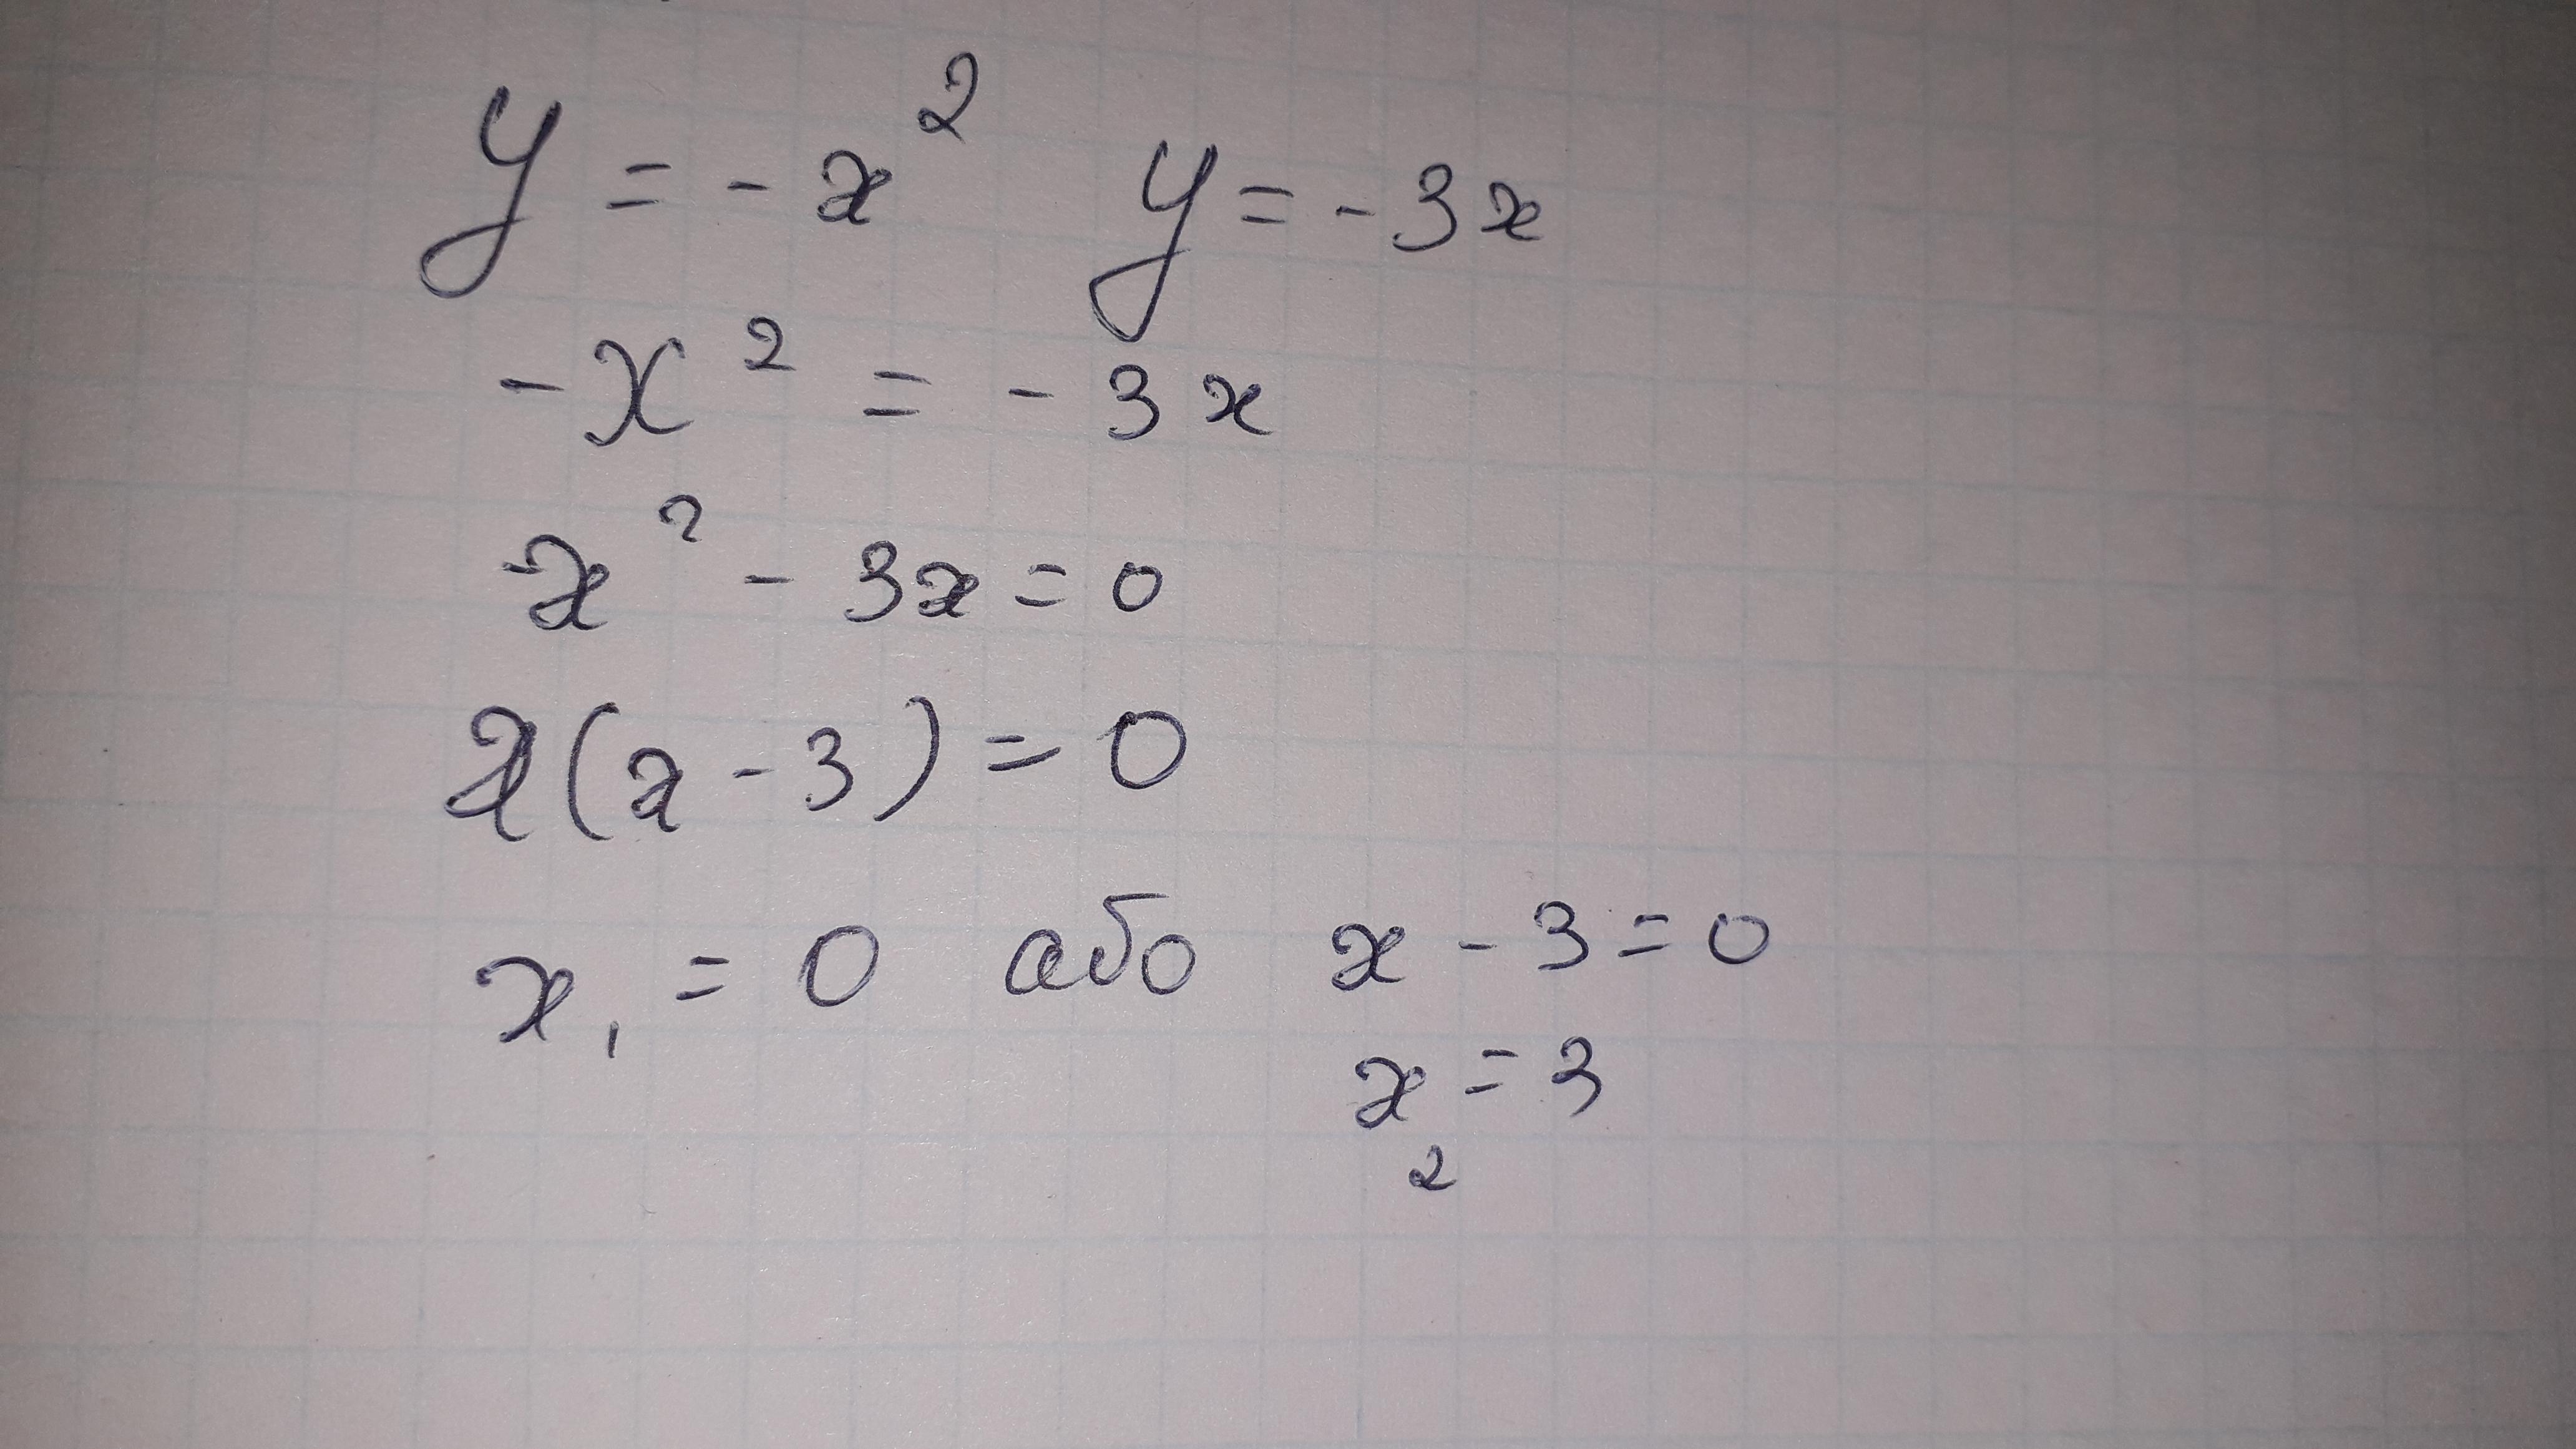 y = - x² y = - 3x
- x² = - 3x
- x² - 3x = 0
x(x - 3) = 0
x₁ = 0 або x - 3 = 0
x₂ = 3